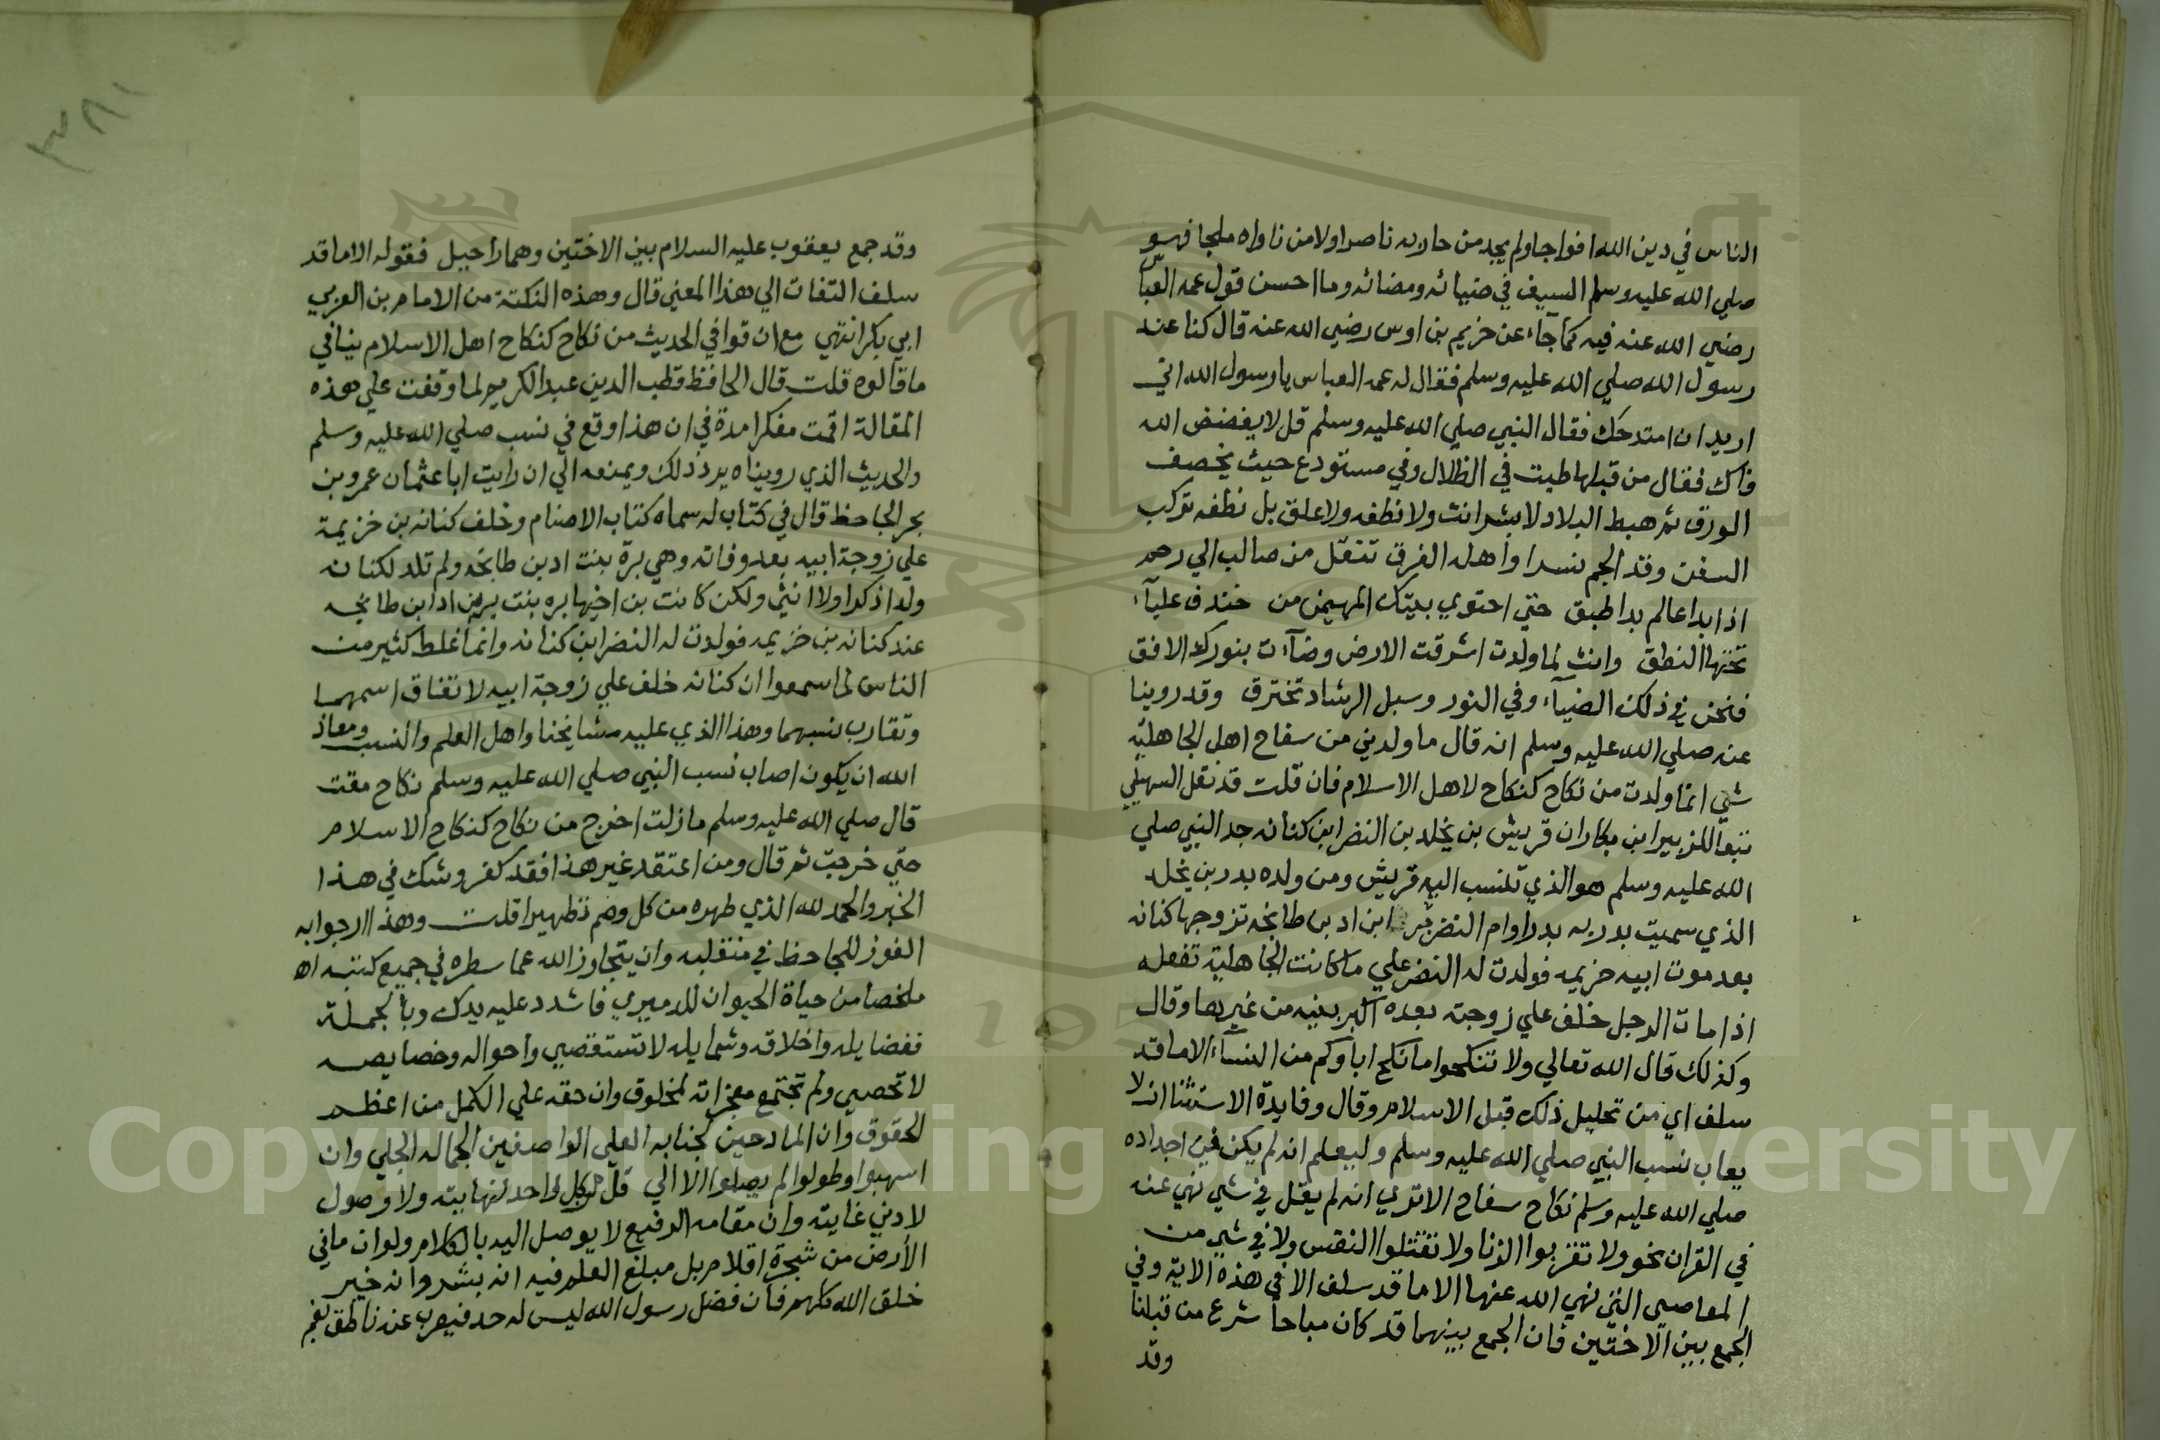 الناس في دين الله افواجا ولم يجد من حاربه ناصرا ولا من ناواه ملجا فهو
صلي الله عليه وسلم السيف في ضيائه ومضائه وما احسن قول عمه العباس
رضي الله عنه فيه كما جآء عن خريم بن اوس رضي الله عنه قال كنا عند
رسول الله صلي الله عليه وسلم فقال له عمه العباس يا رسول الله اني
اريد ان امتدحك فقال النبي صلي الله عليه وسلم قل لا يفضض الله
فاك فقال من قبلها طبت في الظلال وفي مستودع حيث يخصف
الورق ثم هبط البلاد لا بشر انت ولا نطفه ولا علق بل نطفه تركب
السفن وقد الجم نسرا واهله الغرق تنقل من صالب الي رحم
اذا بدا عالم بدا طبق حتي احتوي بيتك المهيمن من خندف عليآء
تحتها النطق وانت لما ولدت اشرقت الارض وضآءت بنورك الافق
فنحن في ذلك الضيآء وفي النور وسبل الرشاد تخترق وقد روينا
عنه صلي الله عليه وسلم انه قال ما ولدني من سفاح اهل الجاهلية
شي انما ولدت من نكاح كنكاح لاهل الاسلام فان قلت قد نقل السهيلي
تبعا للزبير ابن بكار ان قريش بن يخلد بن النضر ابن كنانه جد النبي صلي
الله عليه وسلم هو الذي تنسب اليه قريش ومن ولده بدر بن يخلد
الذي سميت بدر به بدرا وام النضر ابن اد بن طابخه تزوجها كنانه
بعد موت ابيه خزيمه فولدت له النضر علي ما كانت الجاهلية تفعله
اذا مات الرجل خلف علي زوجته بعده اكبر بنيه من غيرها وقال
وكذلك قال الله تعالي ولا تنكحوا ما نكح اباوكم من النسآء الا ما قد
سلف اي من تحليل ذلك قبل الاسلام وقال وفايدة الاستثنا ان لا
يعاب نسب النبي صلي الله عليه وسلم وليعلم انه لم يكن في اجداده
صلي الله عليه وسلم نكاح سفاح الا تري انه لم يقل في شي نهي عنه
في القران نحو ولا تقربوا الزنا ولا تقتلوا النفس ولا في شي من
المعاصي التي نهي الله عنها الا ما قد سلف الا في هذه الاية وفي
الجمع بين الاختين فان الجمع بينهما قد كان مباحا شرع من قبلنا
وقد
وقد جمع يعقوب عليه السلام بين الاختين وهما راحيل فقوله الا ما قد
سلف التفات الي هذا المعني قال وهذه النكتة من الامام بن العربي
ابي بكر انتهي مع ان قوله في الحديث من نكاح كنكاح اهل الاسلام ينافي
ما قالوه قلت قال الحافظ قطب الدين عبد الكريم لما وقفت علي هذه
المقالة اقمت مفكرا مدة في ان هذا وقع في نسب صلي الله عليه وسلم
والحديث الذي رويناه يرد ذلك ويمنعه الي ان رايت ابا عثمان عمرو بن
بحر الجاحظ قال في كتاب له سماه كتاب الاصنام وخلف كنانه بن خزيمة
علي زوجة ابيه بعد وفاته وهي برة بنت اد بن طابخه ولم تلد لكنانه
ولدا ذكرا ولا انثي ولكن كانت بن اخيها بره بنت بن اد ابن طابخه
عند كنانه بن خزيمه فولدت له النضر ابن كنانه وانما غلط كثير من
الناس لما سمعوا ان كنانه خلف علي زوجة ابيه لاتفاق اسمهما
وتقارب نسبهما وهذا الذي عليه مشايخنا واهل العلم والنسب ومعاذ
الله ان يكون اصاب نسب النبي صلي الله عليه وسلم نكاح مقت
قال صلي الله عليه وسلم ما زلت اخرج من نكاح كنكاح الاسلام
حتي خرجت ثم قال ومن اعتقد غير هذا فقد كفر وشك في هذا
الخبر والحمد لله الذي طهره من كل وصم تطهيرا قلت وهذا ارجو ابه
الفوز للجاحظ في منقلبه وان يتجاوز الله عما سطره في جميع كتبه اه
ملخصا من حياة الحيوان للدميري فاشدد عليه يدك وبالجملة
ففضايله واخلاقه وشمايله لا تستقصي واحواله وخصايصه
لا تحصي ولم تجتمع معجزاته لمخلوق وان حقه علي الكمل من اعظم
الحقوق وان المادحين لجنابه العلي الواصفين الجماله الجلي وان
اسهبوا وطولوا لم يصلوا الا الي قل من كل لا حد لنهايته ولا وصول
لا دني غايته وان مقامه الرفيع لا يوصل اليه بالكلام ولو ان ما في
الأرض من شجرة اقلام بل مبلغ العلم فيه انه بشر وانه خير
خلق الله كلهم فان فضل رسول الله ليس له حد فيعرب عنه ناطق بفم
٣٨١
Copyright © King Saud University
1957